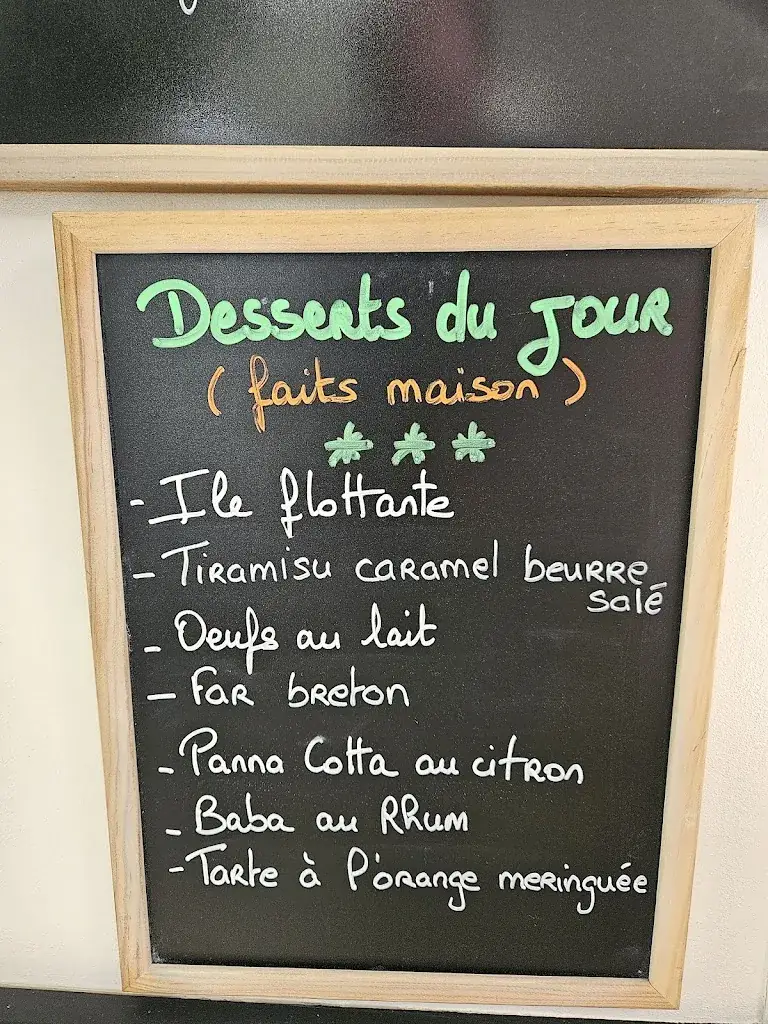 Desserts du jour
(faits maison)
***
- Ile flottante
- Tiramisu caramel beurre
salé
- Oeufs au lait
- Far breton
- Panna Cotta au citron
- Baba au Rhum
- Tarte à l'orange meringuée